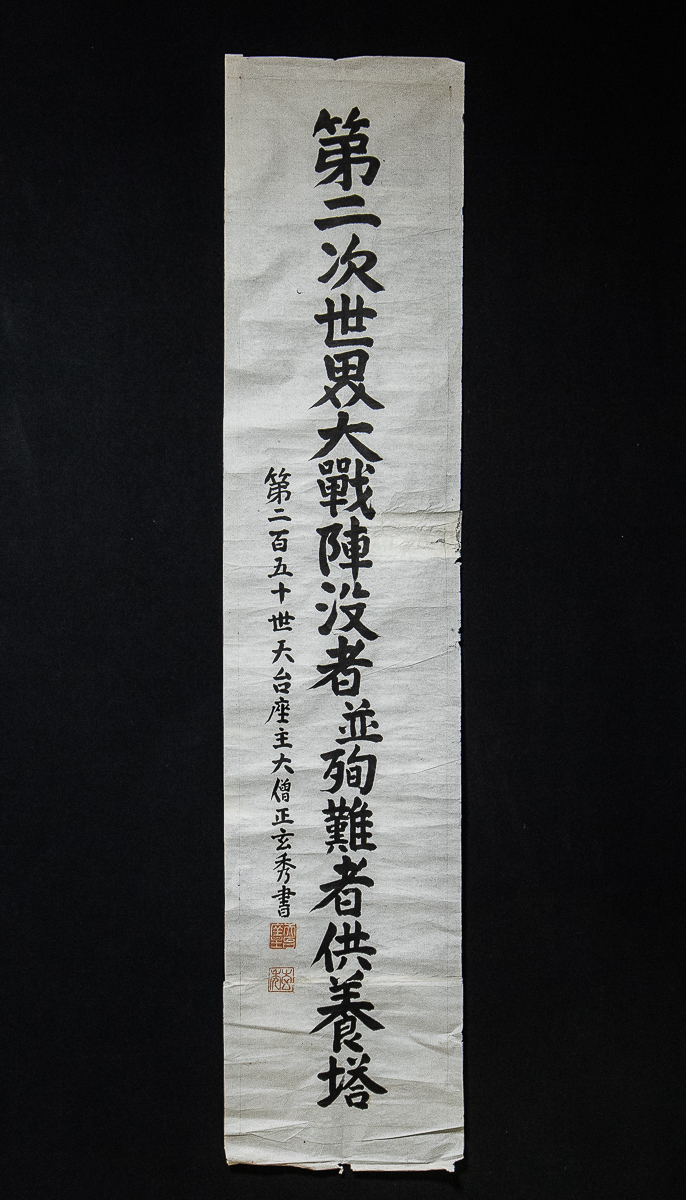 第二次世界大戰陣没者並殉難者供養塔
第二百五十世天台座主大僧正玄秀書